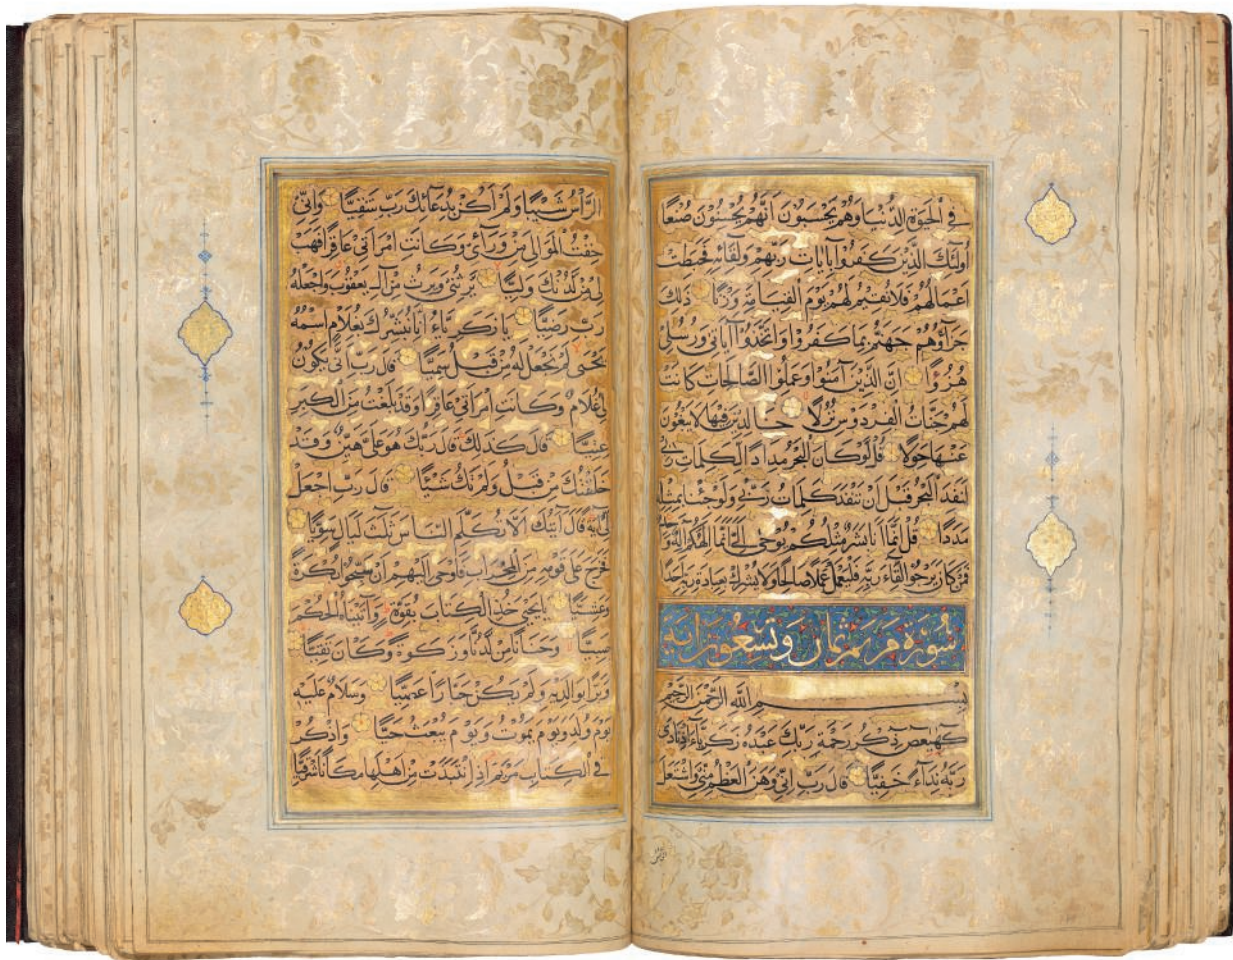 في الحيوة الدنيا وهم يحسبون انهم يحسنون صنعا
اولئك الذين كفروا بايات ربهم ولقائه فحبطت
اعمالهم فلا نقيم لهم يوم القيامة وزنا ذلك
جزاؤهم جهنم بما كفروا واتخذوا آياتي ورسلي
هزوا ان الذين آمنوا وعملوا الصالحات كانت
لهم جنات الفردوس نزلا خالدين فيها لا يبغون
عنها حولا قل لو كان البحر مدادا لكلمات ربي
لنفد البحر قبل ان تنفد كلمات ربي ولو جئنا بمثله
مددا قل انما انا بشر مثلكم يوحى الي انما الهكم اله واحد
فمن كان يرجو لقاء ربه فليعمل عملا صالحا ولا يشرك بعبادة ربه احدا
سورة مريم ثمان وتسعون اية
بسم الله الرحمن الرحيم
كهيعص ذكر رحمة ربك عبده زكرياء اذ نادى
ربه نداء خفيا قال رب اني وهن العظم مني واشتعل
الرأس شيبا ولم اكن بدعائك رب شقيا واني
خفت الموالي من ورائي وكانت امراتي عاقرا فهب
لي من لدنك وليا يرثني ويرث من آل يعقوب واجعله
رب رضيا يا زكرياء انا نبشرك بغلام اسمه
يحيى لم نجعل له من قبل سميا قال رب انى يكون
لي غلام وكانت امراتي عاقرا وقد بلغت من الكبر
عتيا قال كذلك قال ربك هو علي هين وقد
خلقتك من قبل ولم تك شيئا قال رب اجعل
لي آية قال آيتك الا تكلم الناس ثلث ليال سويا
فخرج على قومه من المحراب فاوحى اليهم ان سبحوا بكرة
وعشيا يا يحيى خذ الكتاب بقوة وآتيناه الحكم
صبيا وحنانا من لدنا وزكوة وكان تقيا
وبرا بوالديه ولم يكن جبارا عصيا وسلام عليه
يوم ولد ويوم يموت ويوم يبعث حيا واذكر
في الكتاب مريم اذ انتبذت من اهلها مكانا شرقيا